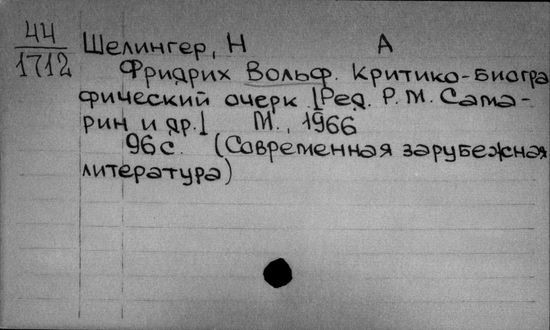 44
1712
Шелингер, Н А
Фридрих Вольф. Критико-биогра
фический очерк [Ред. Р.М. Сама-
рин и др.] М., 1966
96 с. (Современная зарубежная
литература)